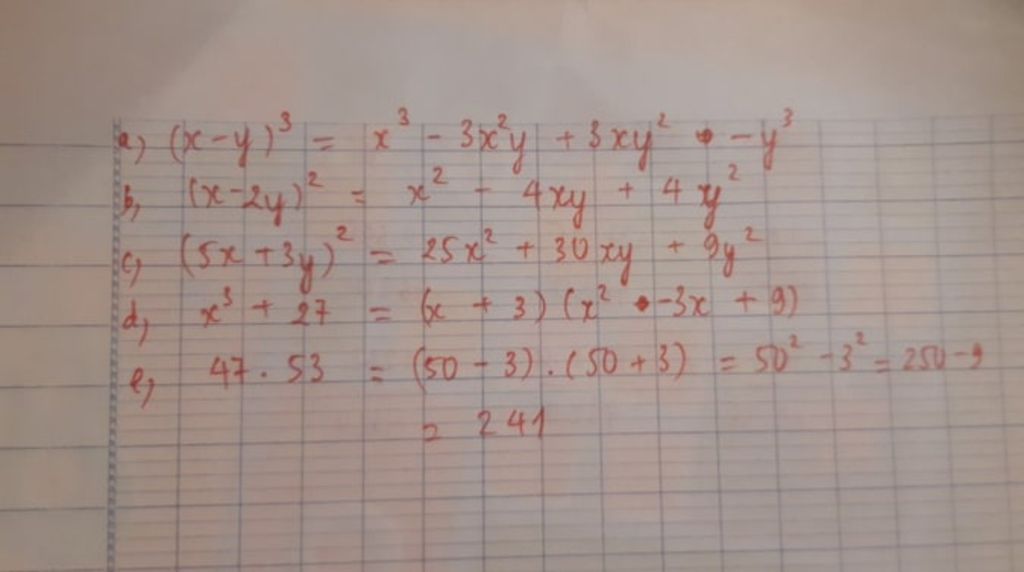 a) (x-y)³ = x³ - 3x²y + 3xy² - y³
b) (x-2y)² = x² - 4xy + 4y²
c) (5x+3y)² = 25x² + 30xy + 9y²
d) x³ + 27 = (x + 3) (x² - 3x + 9)
e) 47 . 53 = (50 - 3) . (50 + 3) = 50² - 3² = 250 - 9
= 241